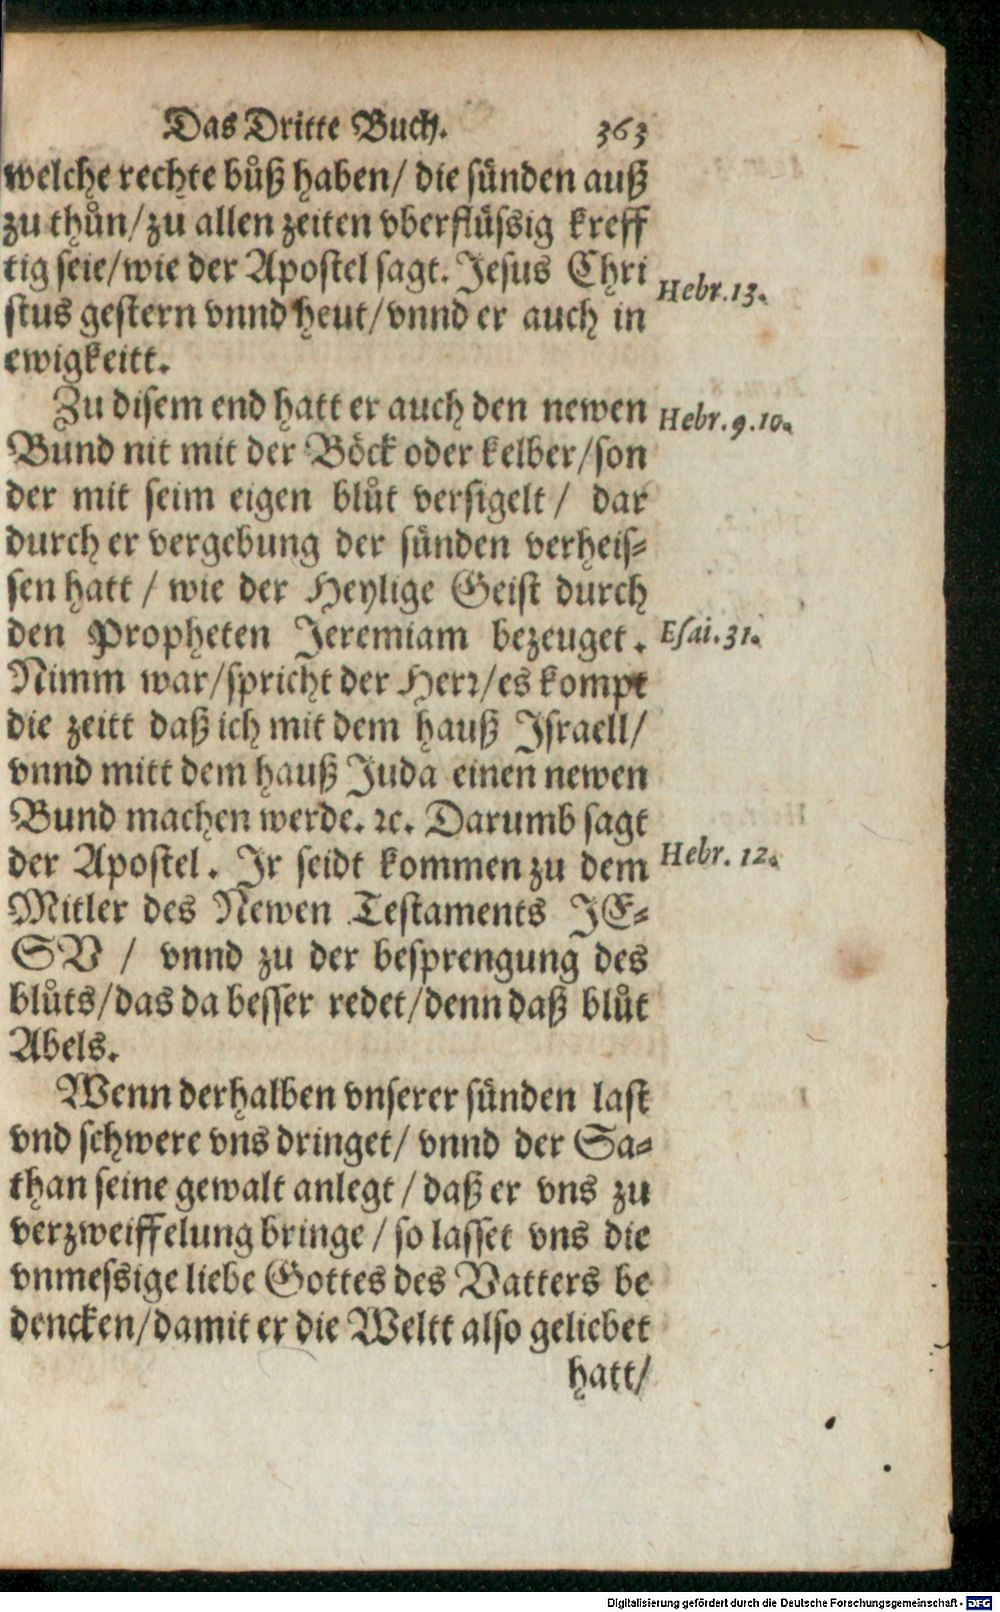 Das Dritte Buch. 363
welche rechte bůß haben/ die sünden auß
zu thůn/zu allen zeiten vberflüssig kreff
tig seie/wie der Apostel sagt. Jesus Chri
Hebr.13.
stus gestern vnnd heut/vnnd er auch in
ewigkeitt.
Zu disem end hatt er auch den newen
Hebr.9.10.
Bund nit mit der Böck oder kelber/son
der mit seim eigen blůt versigelt/ dar
durch er vergebung der sünden verheis-
sen hatt / wie der Heylige Geist durch
den Propheten Jeremiam bezeuget.
Esai.31.
Nimm war/spricht der Herr/es kompt
die zeitt daß ich mit dem hauß Israell/
vnnd mitt dem hauß Juda einen newen
Bund machen werde. ꝛc. Darumb sagt
der Apostel. Ir seidt kommen zu dem
Hebr. 12.
Mitler des Newen Testaments JE-
SV / vnnd zu der besprengung des
blůts/das da besser redet/denn daß blůt
Abels.
Wenn derhalben vnserer sünden last
vnd schwere vns dringet/ vnnd der Sa-
than seine gewalt anlegt/daß er vns zu
verzweiffelung bringe/so lasset vns die
vnmessige liebe Gottes des Vatters be
dencken/damit er die Weltt also geliebet
hatt/
Digitalisierung gefördert durch die Deutsche Forschungsgemeinschaft - DFG